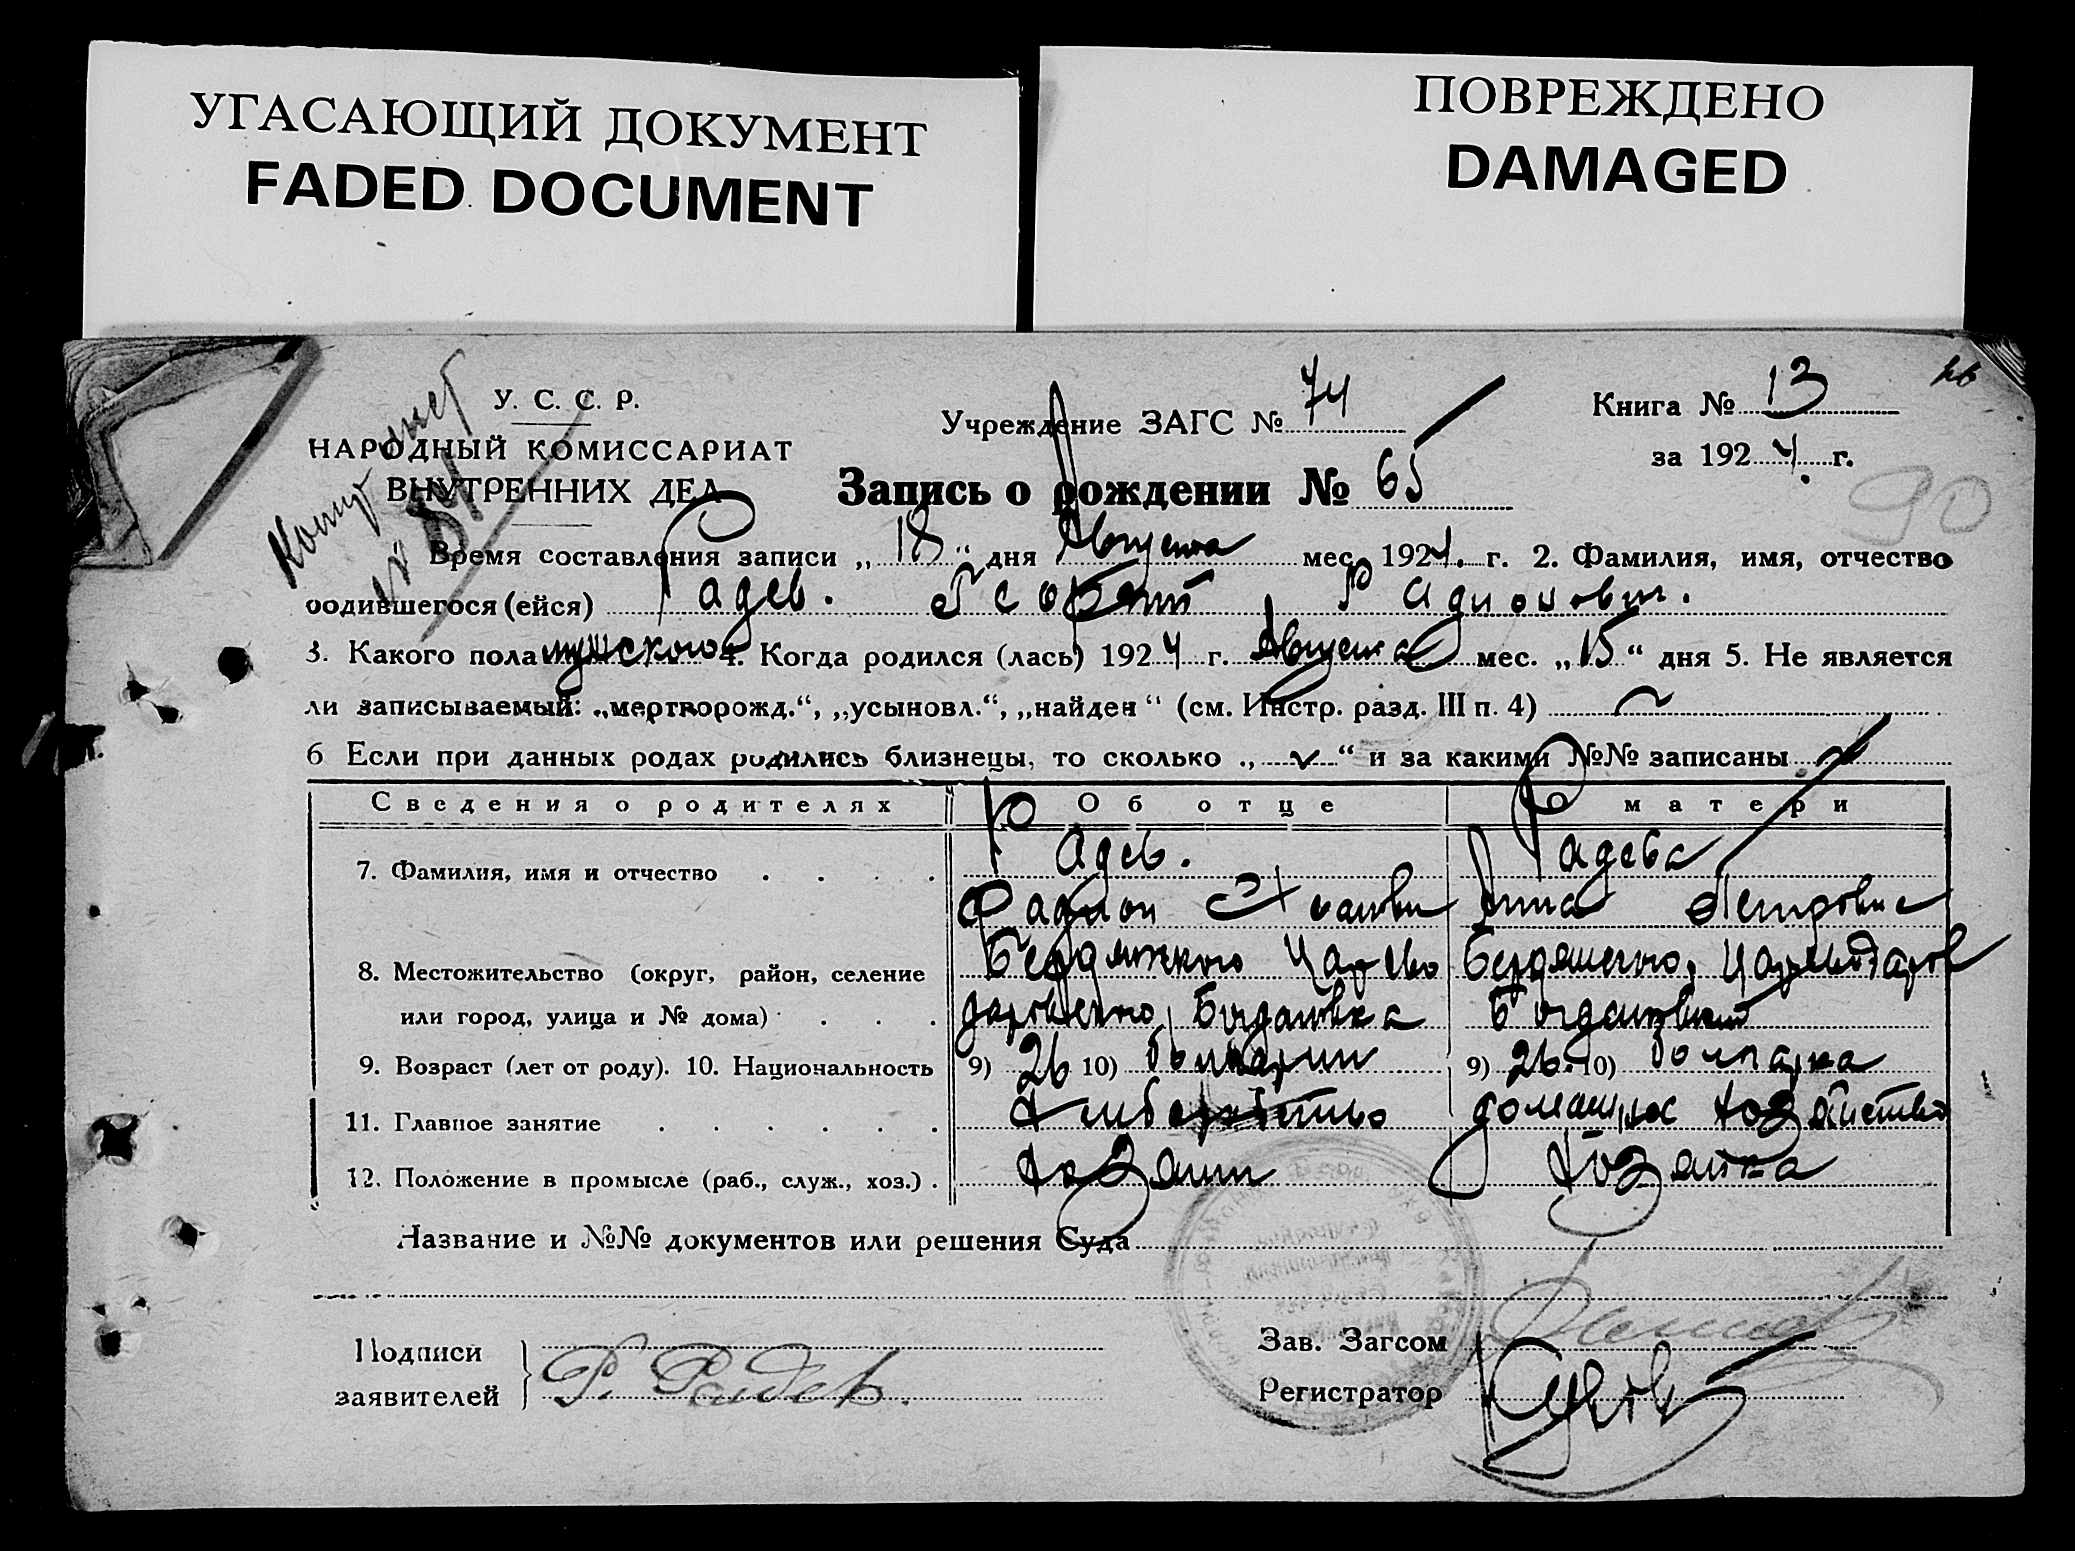 УГАСАЮЩИЙ ДОКУМЕНТ
FADED DOCUMENT
ПОВРЕЖДЕНО
DAMAGED
У. С. С. Р.
НАРОДНЫЙ КОМИССАРИАТ
ВНУТРЕННИХ ДЕЛ
Учреждение ЗАГС № 74
Книга № 13
за 1924 г.
90
Запись о рождении № 65
Время составления записи „18“ дня Августа мес. 1924. г. 2. Фамилия, имя, отчество
родившегося (ейся) Радев. Радионович.
3. Какого пола мужского 4. Когда родился (лась) 1924 г. Августа мес. „15“ дня 5. Не является
ли записываемый: „мертворожд.“, „усыновл.“, „найден“ (см. Инстр. разд. III п. 4)
6 Если при данных родах родились близнецы, то сколько „ “ и за какими №№ записаны
Сведения о родителях Об отце О матери
7. Фамилия, имя и отчество . . . . Радев. Радева
Радион Анна Петровна
8. Местожительство (округ, район, селение Бердянского Царево Бердянского, Царевода
или город, улица и № дома) . . . Богдановка
9. Возраст (лет от роду). 10. Национальность 9) 26 10) болгарин 9) 26. 10) болгарка
11. Главное занятие . . . . . . хлебороство домашнее хозяйство
12. Положение в промысле (раб., служ., хоз.) . хозяин хозяйка
Название и №№ документов или решения Суда
Подписи
заявителей
Р. Радев.
Зав. Загсом
Регистратор